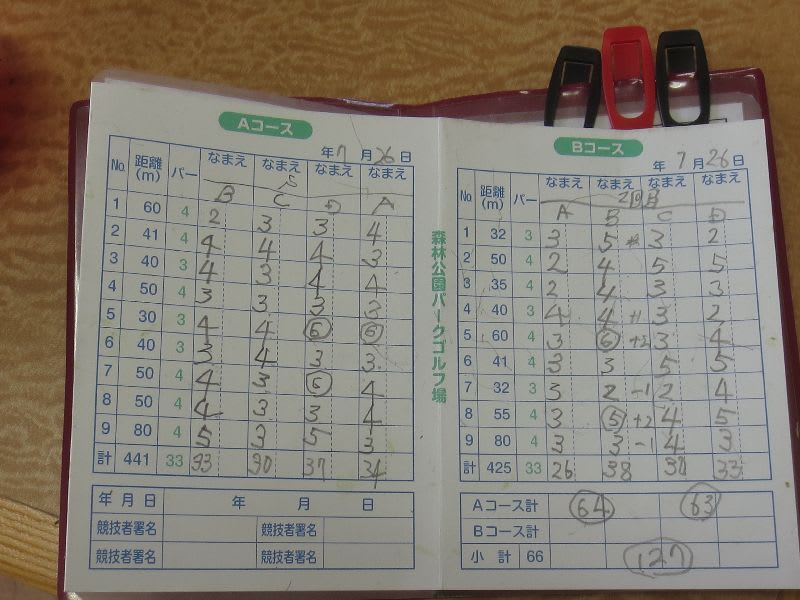 Aコース
年7月26日
No. 距離(m) パー なまえ なまえ なまえ なまえ
B C D A
1 60 4 2 3 3 4
2 41 4 4 4 4 3
3 40 3 4 3 4 4
4 50 4 3 3 3 3
5 30 3 4 4
6 40 3 3 4 3 3
7 50 4 4 3 4
8 50 4 4 3 3 4
9 80 4 5 3 5 3
計 441 33 33 30 37 34
年月日 年 月 日
競技者署名 競技者署名
競技者署名 競技者署名
森林公園パークゴルフ場
Bコース
年 7月26日
No. 距離(m) パー なまえ なまえ なまえ なまえ
2回目
A B C D
1 32 3 3 5 3 2
2 50 4 2 4 5 5
3 35 4 2 4 3 3
4 40 3 4 4 +1 3 2
5 60 4 3 6 +2 3 4
6 41 4 3 3 5 5
7 32 3 3 2 -1 2 4
8 55 4 3 5 +2 4 5
9 80 4 3 3 -1 4 3
計 425 33 26 38 33
Aコース計 64 63
Bコース計
小計 66 127